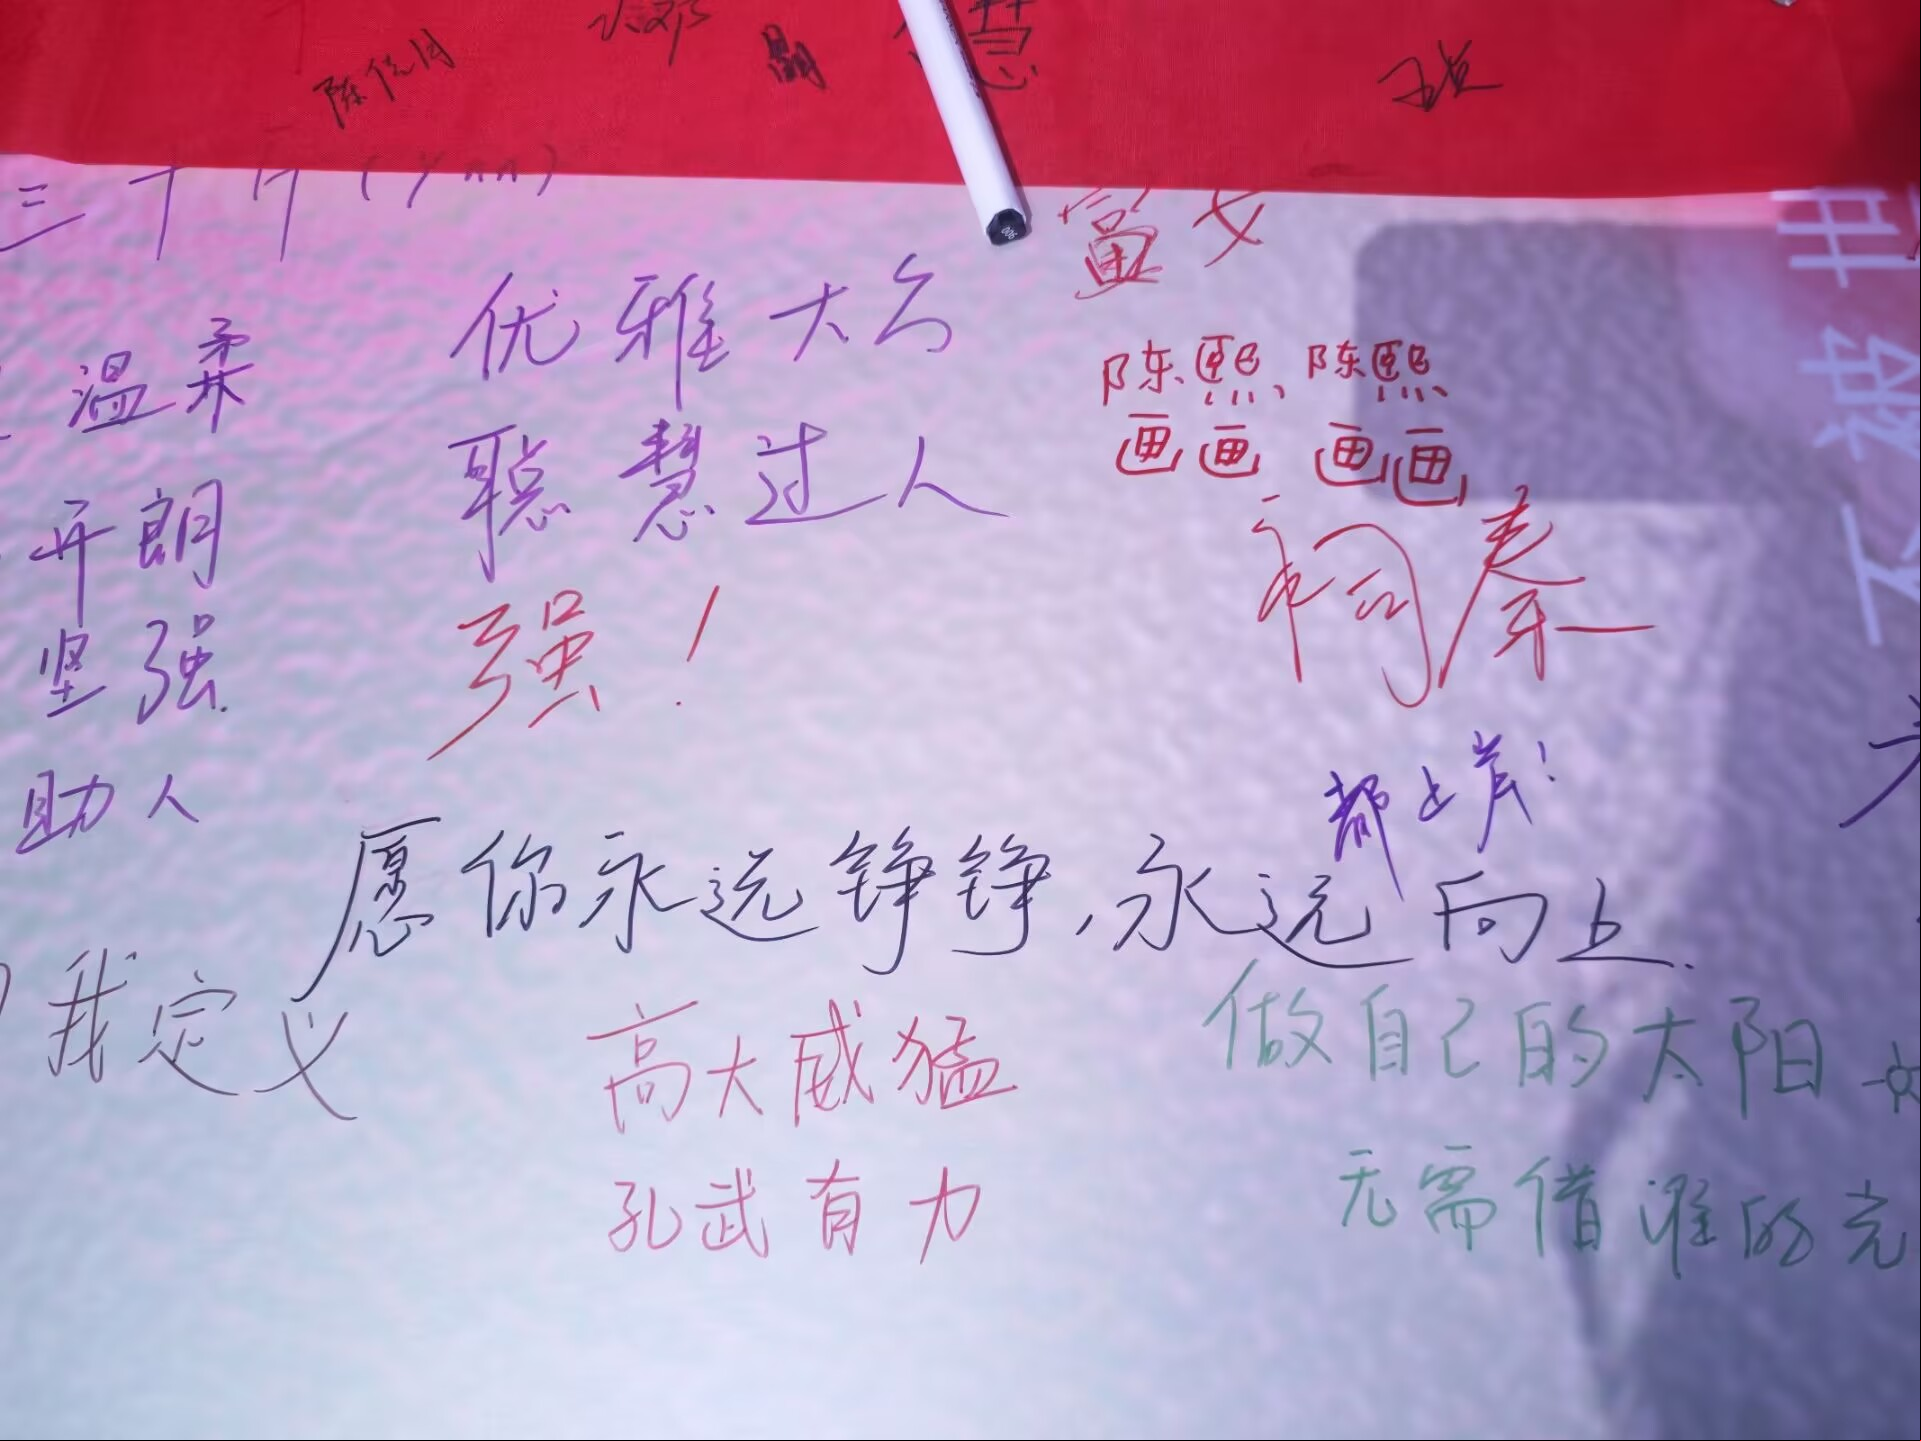 富女
温柔
优雅大方
陈熙、陈熙
画画 画画
开朗
聪慧过人
坚强
强！
祠秦
助人
都上岸！
愿你永远铮铮，永远向上.
我定义
高大威猛
做自己的太阳
孔武有力
无需借谁的光
不被